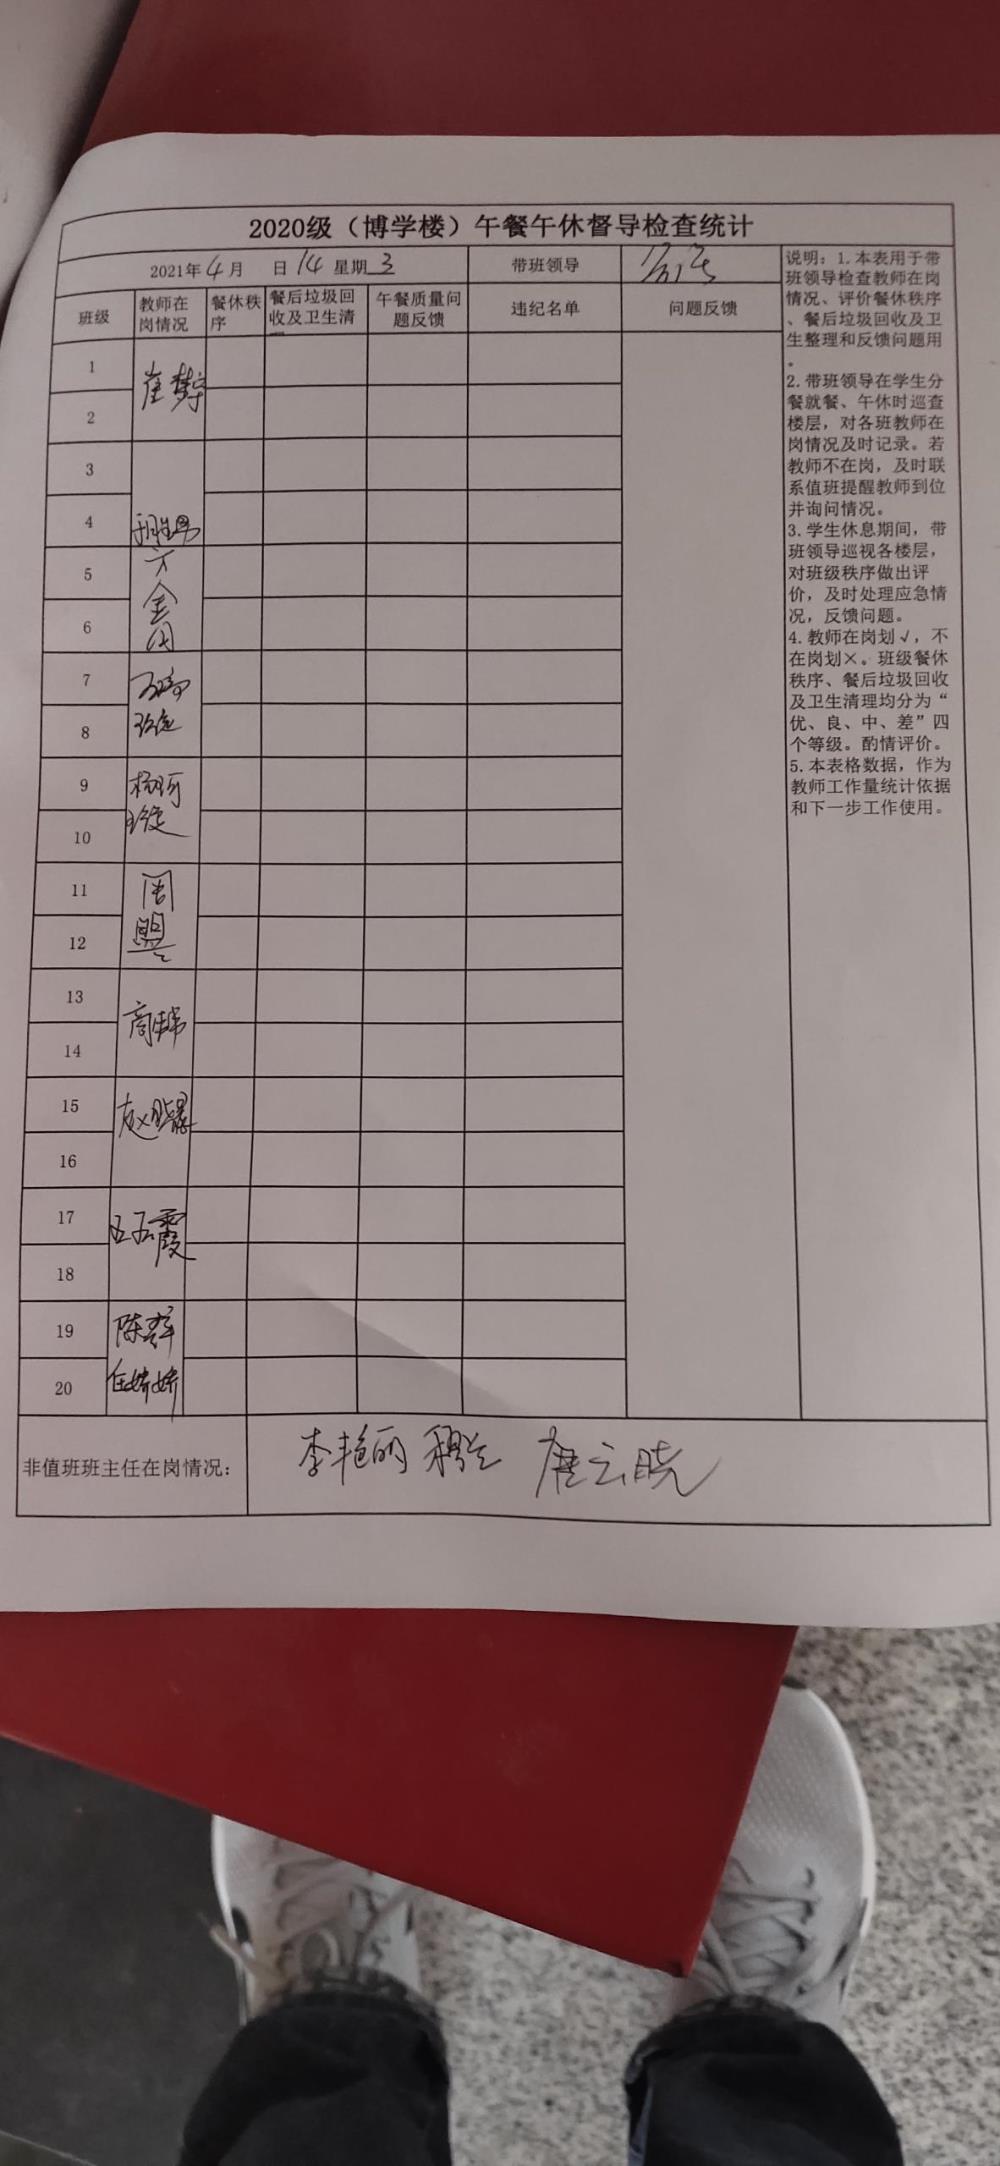 2020级（博学楼）午餐午休督导检查统计
2021年4月 日14 星期3 带班领导
班级 教师在岗情况 餐休秩序 餐后垃圾回收及卫生清 午餐质量问题反馈 违纪名单 问题反馈
1
2
3
4
5
6
7
8
9
10
11 周
12 盟
13
14
15
16
17
18
19 陈
20 任娇娇
非值班班主任在岗情况： 李艳丽 唐云晓
说明：1.本表用于带
班领导检查教师在岗
情况、评价餐休秩序
、餐后垃圾回收及卫
生整理和反馈问题用
。
2.带班领导在学生分
餐就餐、午休时巡查
楼层，对各班教师在
岗情况及时记录。若
教师不在岗，及时联
系值班提醒教师到位
并询问情况。
3.学生休息期间，带
班领导巡视各楼层，
对班级秩序做出评
价，及时处理应急情
况，反馈问题。
4.教师在岗划√，不
在岗划×。班级餐休
秩序、餐后垃圾回收
及卫生清理均分为“
优、良、中、差”四
个等级。酌情评价。
5.本表格数据，作为
教师工作量统计依据
和下一步工作使用。